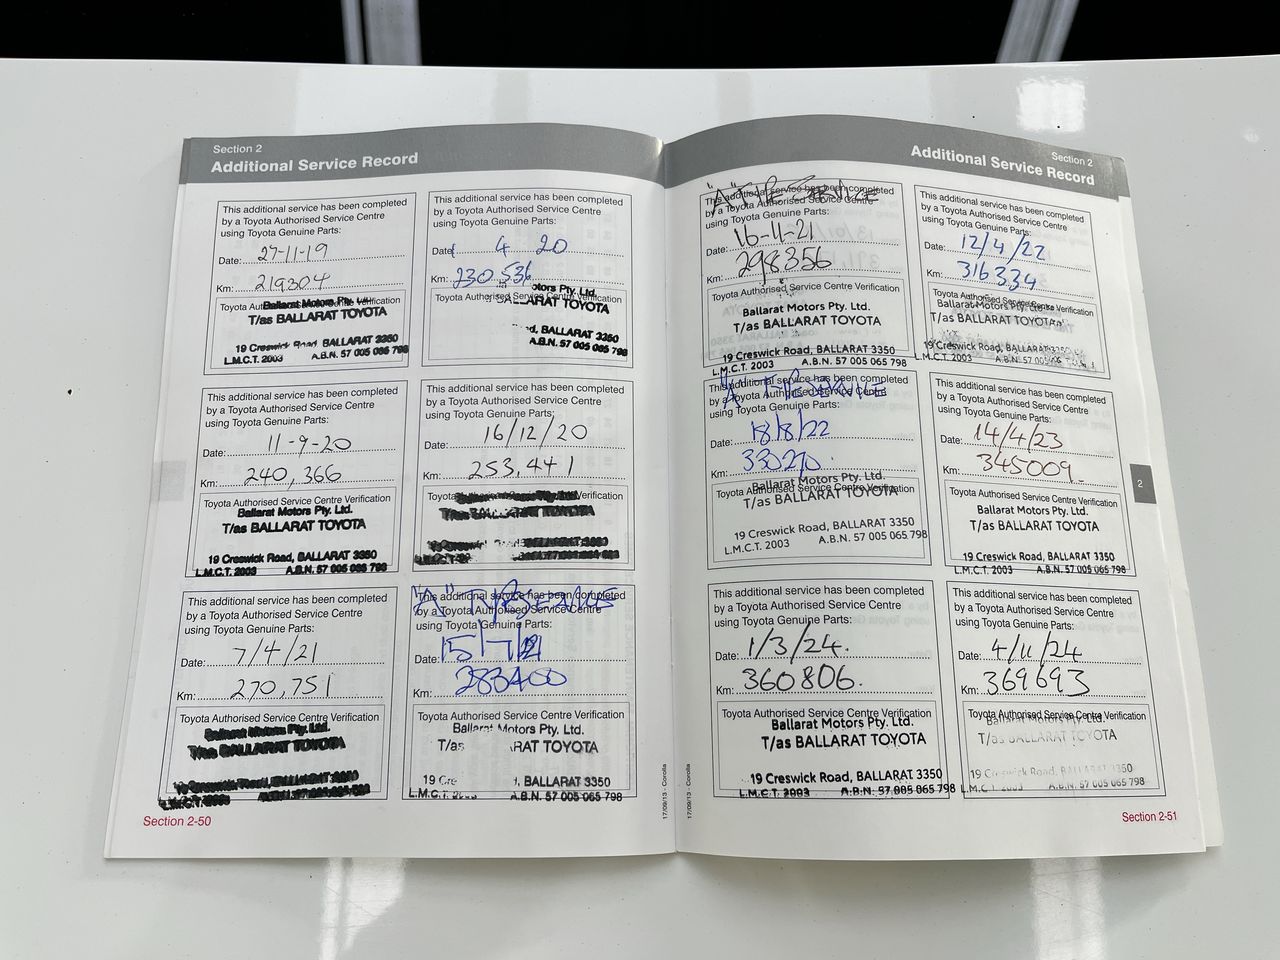 Section 2
Additional Service Record
This additional service has been completed
by a Toyota Authorised Service Centre
using Toyota Genuine Parts:
Date: 27-11-19
Km: 219304
Toyota Authorised Service Centre Verification
Ballarat Motors Pty. Ltd.
T/as BALLARAT TOYOTA
19 Creswick Road, BALLARAT 3350
L.M.C.T. 2003 A.B.N. 57 005 065 798
This additional service has been completed
by a Toyota Authorised Service Centre
using Toyota Genuine Parts:
Date: 4 20
Km: 230536
Toyota Authorised Service Centre Verification
otors Pty. Ltd.
ARAT TOYOTA
ad, BALLARAT 3350
A.B.N. 57 005 065 798
This additional service has been completed
by a Toyota Authorised Service Centre
using Toyota Genuine Parts:
Date: 11-9-20
Km: 240,366
Toyota Authorised Service Centre Verification
Ballarat Motors Pty. Ltd.
T/as BALLARAT TOYOTA
19 Creswick Road, BALLARAT 3350
L.M.C.T. 2003 A.B.N. 57 005 065 798
This additional service has been completed
by a Toyota Authorised Service Centre
using Toyota Genuine Parts:
Date: 16/12/20
Km: 253,441
Toyota Authorised Service Centre Verification
This additional service has been completed
by a Toyota Authorised Service Centre
using Toyota Genuine Parts:
Date: 7/4/21
Km: 270,751
Toyota Authorised Service Centre Verification
Ballarat Motors Pty. Ltd.
T/as BALLARAT TOYOTA
19 Creswick Road, BALLARAT 3350
"A" TYPE SERVICE
This additional service has been completed
by a Toyota Authorised Service Centre
using Toyota Genuine Parts:
Date: 15/7/21
Km: 283400
Toyota Authorised Service Centre Verification
Ballarat Motors Pty. Ltd.
T/as RAT TOYOTA
19 Cre d, BALLARAT 3350
L.M.C.T. A.B.N. 57 005 065 798
Section 2-50
17/09/13 - Corolla
Section 2
Additional Service Record
"A" TYPE SERVICE
This additional service has been completed
by a Toyota Authorised Service Centre
using Toyota Genuine Parts:
Date: 16-11-21
Km: 298356
Toyota Authorised Service Centre Verification
Ballarat Motors Pty. Ltd.
T/as BALLARAT TOYOTA
19 Creswick Road, BALLARAT 3350
L.M.C.T. 2003 A.B.N. 57 005 065 798
This additional service has been completed
by a Toyota Authorised Service Centre
using Toyota Genuine Parts:
Date: 12/4/22
Km: 316334
Toyota Authorised Service Centre Verification
Ballarat Motors Pty. Ltd.
T/as BALLARAT TOYOTA
19 Creswick Road, BALLARAT 3350
L.M.C.T. 2003 A.B.N. 57 005
"A" TYPE SERVICE
This additional service has been completed
by a Toyota Authorised Service Centre
using Toyota Genuine Parts:
Date: 18/8/22
Km: 330270.
Toyota Authorised Service Centre Verification
Ballarat Motors Pty. Ltd.
T/as BALLARAT TOYOTA
19 Creswick Road, BALLARAT 3350
L.M.C.T. 2003 A.B.N. 57 005 065 798
This additional service has been completed
by a Toyota Authorised Service Centre
using Toyota Genuine Parts:
Date: 14/4/23
Km: 345009.
Toyota Authorised Service Centre Verification
Ballarat Motors Pty. Ltd.
T/as BALLARAT TOYOTA
19 Creswick Road, BALLARAT 3350
L.M.C.T. 2003 A.B.N. 57 005 065 798
2
This additional service has been completed
by a Toyota Authorised Service Centre
using Toyota Genuine Parts:
Date: 1/3/24.
Km: 360806.
Toyota Authorised Service Centre Verification
Ballarat Motors Pty. Ltd.
T/as BALLARAT TOYOTA
19 Creswick Road, BALLARAT 3350
L.M.C.T. 2003 A.B.N. 57 005 065 798
This additional service has been completed
by a Toyota Authorised Service Centre
using Toyota Genuine Parts:
Date: 4/11/24
Km: 369693
Toyota Authorised Service Centre Verification
Ballarat Motors Pty. Ltd.
T/as BALLARAT TOYOTA
19 Creswick Road, BALLARAT 3350
L.M.C.T. 2003 A.B.N. 57 005 065 798
17/09/13 - Corolla
Section 2-51